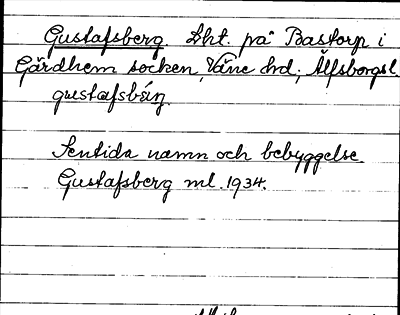 Gustafsberg. Lht. på Bastorp i
Gärdhem socken, Väne hd; Älfsborgs l.
gustafsbärj.
Sentida namn och bebyggelse.
Gustafsberg ml. 1934.